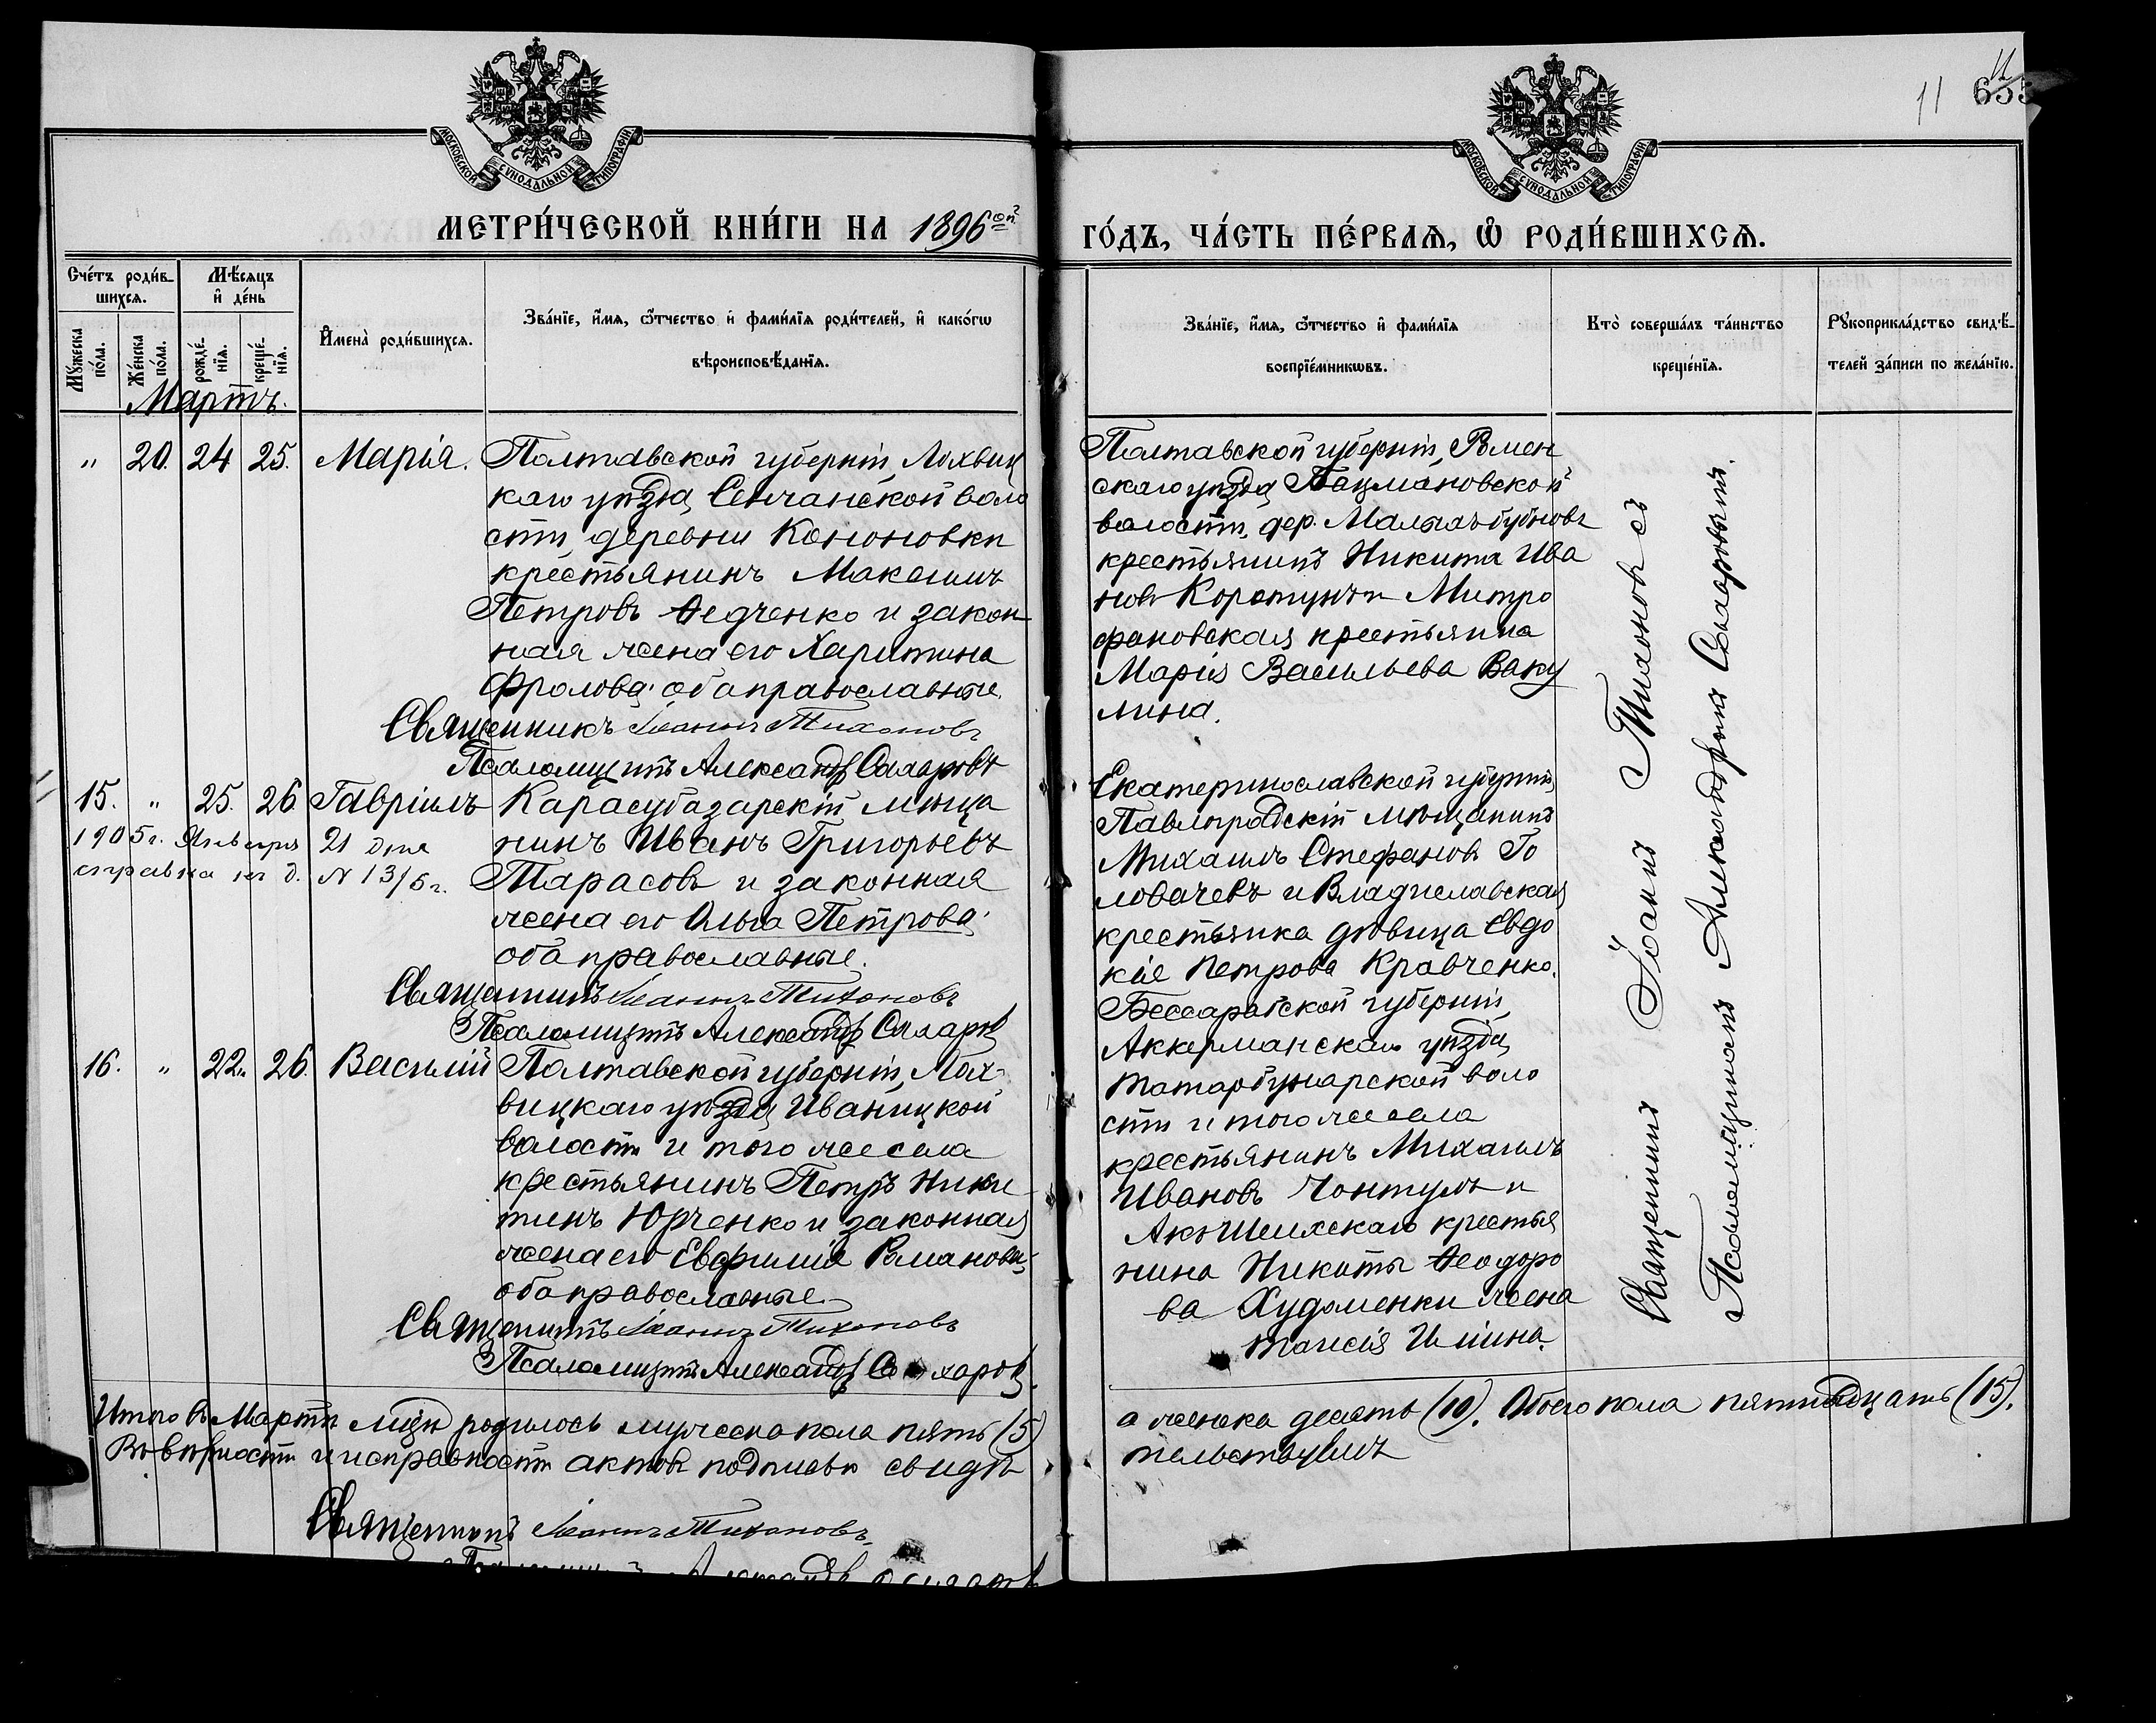 11
11
655
МОСКОВСКОЙ СѴНОДАЛЬНОЙ ТИПОГРАФІИ
МОСКОВСКОЙ СѴНОДАЛЬНОЙ ТИПОГРАФІИ
МЕТРИ́ЧЕСКОЙ КНИ́ГИ НА 1896ой ГО́ДЪ, ЧА́СТЬ ПЕ́РВАѦ, Ѡ РОДИ́ВШИХСѦ.
Сче́тъ роди́вшихсѧ.
Мꙋ́жеска по́ла.
Же́нска по́ла.
Мѣ́сѧцъ и҆ де́нь
рожде́нїѧ.
креще́нїѧ.
И҆мена̀ роди́вшихсѧ.
Зва́нїе, и҆́мѧ, ѻ҆́тчество и҆ фами́лїѧ роди́телей, и҆ како́гѡ
вѣроисповѣ́данїѧ.
Зва́нїе, и҆́мѧ, ѻ҆́тчество и҆ фами́лїѧ
воспрїе́мникѡвъ.
Кто̀ соверша́лъ та́инство
креще́нїѧ.
Рꙋкоприкла́дство свидѣ́-
телей за́писи по жела́нїю.
Мартъ.
" 20. 24 25. Марія. Полтавской губерніи, Лохвиц
каго уѣзда, Сенчанской воло
сти, деревни Кононовки
крестьянинъ Максимъ
Петровъ Ѳедченко и закон
ная жена его Харитина
Фролова; оба православные.
Священникъ Іоаннъ Тихоновъ
Псаломщикъ Александръ Сахаровъ
Полтавской губерніи, Ромен
скаго уѣзда,
волости, дер.
крестьянинъ Никита Ива
новъ Коротунъ и Митро
фановская крестьянка
Марія Васильева Ваку
лина.
15. " 25. 26 Гавріилъ Карасубазарскій мѣща
нинъ Иванъ Григорьевъ
Тарасовъ и законная
жена его Ольга Петрова;
оба православные.
1905г. Января 21 дня
справка на д. N 13/5г.
Священникъ Іоаннъ Тихоновъ
Псаломщикъ Александръ Сахаровъ
Екатеринославской губерніи,
Павлоградскій мѣщанинъ
Михаилъ Стефановъ Го
ловачевъ и Владиславская
крестьянка дѣвица Евдо
кія Петрова Кравченко.
16. " 22. 26. Василій Полтавской губерніи, Лох-
вицкаго уѣзда, Иваницкой
волости и того же села
крестьянинъ Петръ Ники
тинъ Юрченко и законная
жена его Евфимія Романова;
оба православные.
Священникъ Іоаннъ Тихоновъ
Псаломщикъ Александръ Сахаровъ.
Бессарабской губерніи,
Аккерманскаго уѣзда,
Татарбунарской воло
сти и того же села
крестьянинъ Михаилъ
Ивановъ и
Акъ-Шеихскаго крестья
нина Никиты Ѳеодоро
ва Худоменки жена
Таисія Ильина.
Священникъ Іоаннъ Тихоновъ съ
Псаломщикомъ Александромъ Сахаровымъ.
Итого въ Мартѣ мцѣ родилось мужеска пола пять (5)
а женска десять (10). Обоего пола пятнадцать (15).
Въ вѣрности и исправности актовъ подписью свидѣ
тельствуемъ
Священникъ Іоаннъ Тихоновъ.